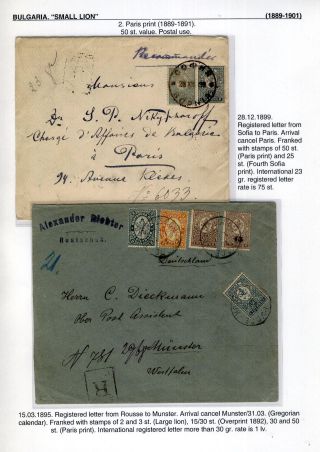 BULGARIA. "SMALL LION"
(1889-1901)
2. Paris print (1889-1891).
50 st. value. Postal use.
Recommandée
Dr S. P.
Chargé d'Affaires de Bulgarie
à Paris
94. Avenue Kléber
28.12.1899.
Registered letter from
Sofia to Paris. Arrival
cancel Paris. Franked
with stamps of 50 st.
(Paris print) and 25
st. (Fourth Sofia
print). International 23
gr. registered letter
rate is 75 st.
Alexander Richter
Rustschuk.
21.
Deutschland
Herrn C. Dieckmann
Ober Post Assistent
Münster
Westfalen
R
15.03.1895. Registered letter from Rousse to Munster. Arrival cancel Munster/31.03. (Gregorian
calendar). Franked with stamps of 2 and 3 st. (Large lion), 15/30 st. (Overprint 1892), 30 and 50
st. (Paris print). International registered letter more than 30 gr. rate is 1 lv.